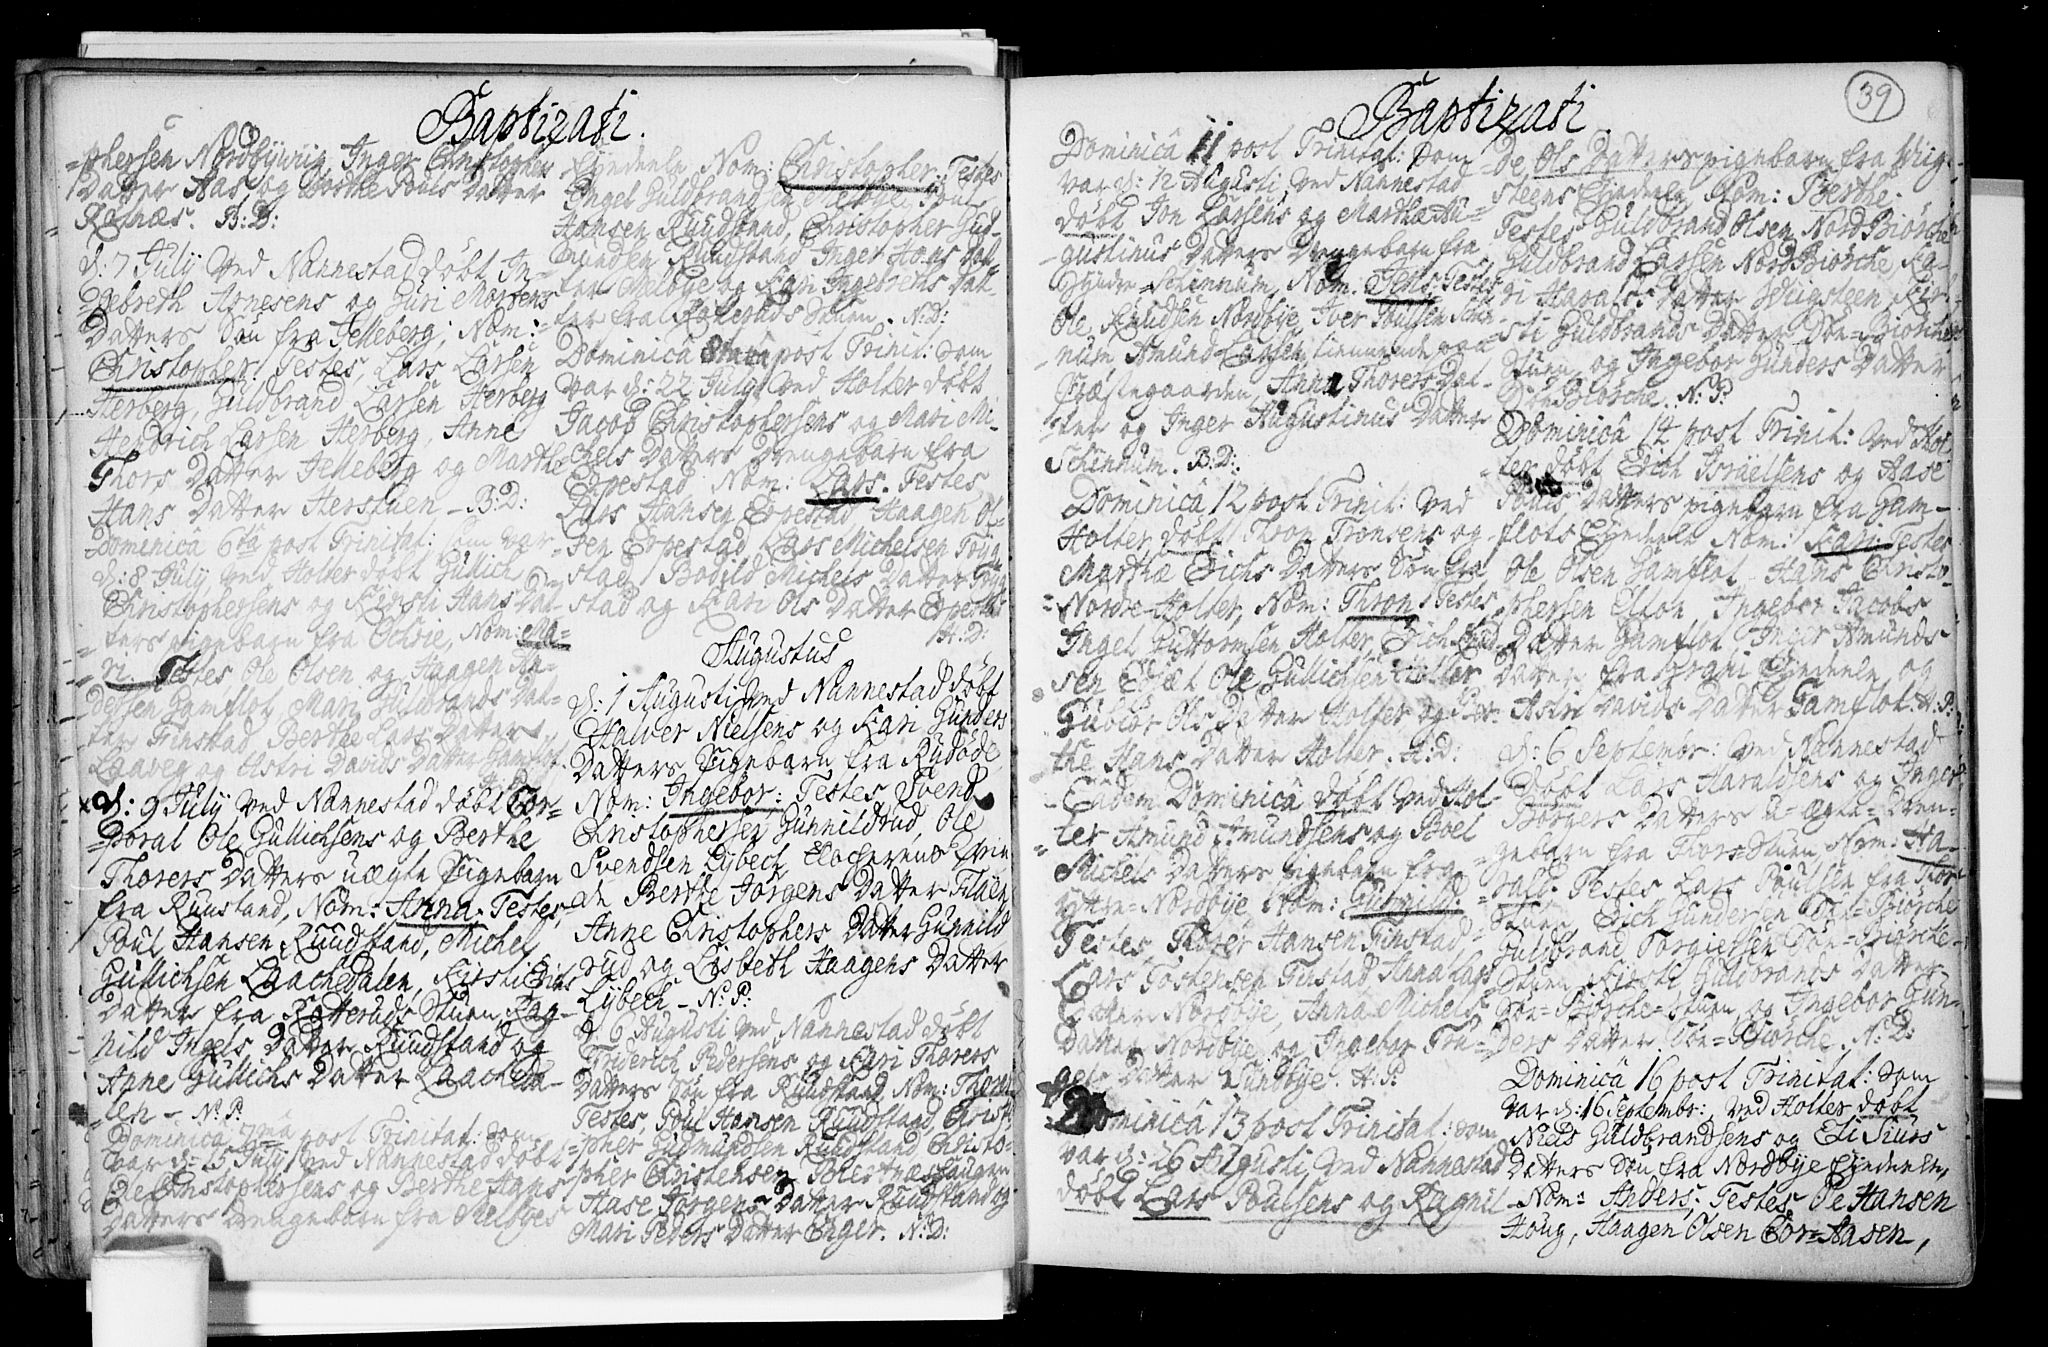 Baptizati.
=phersen Nordbywiig, Inger Christophers
Datter Aas og Berthe Pouls Datter
Rognæs. B: D:
d: 7 July ved Nannestad døbt In-
gebreth Arnesens og Guri Mortens
Datters Søn fra Jelleberg, Nom:
Christopher. Testes, Lars Larsen
Herberg, Guldbrand Larsen Herberg
Hendrich Larsen Herberg, Anne
Thors Datter Jelleberg og Marthe
Hans Datter Herstuen - B: D:
Dominica 6ta post Trinitat: som var
d: 8 July, ved Holter døbt Gullich
Christophersens og Kirsti Hans Dat-
ters pigebarn fra Echrie, Nom: Ma-
ri. Testes Ole Olsen og Haagen An-
dersen Gamflot, Mari Guldbrands Dat-
ter Finstad, Berthe Lars Datter
Laaveg og Astri Davids Datter Gamflot
d: 9 July ved Nannestad døbt Cor-
=poral Ole Gullichsens og Berthe
Thorers Datters uægte Pigebarn
fra Ruustand, Nom: Anna. Testes,
Poul Hansen Ruudstand, Michel
Gullichsen Laachedalen, Kirsti Eriks
Datter fra Ratterud Stuen, Rag-
nild Ingels Datter Ruudstand og
Anne Gullichs Datter Laacheda-
len - N: P:
Dominica 7ma post Trinitat: som
var d: 15 July ved Nannestad døbt
Ole Christophersens og Berthe Hans
Datters Drengebarn fra Meløyes
Eyendele Nom: Christopher. Testes
Engel Guldbrandsen Meløye, Poul
Hansen Ruudstand, Christopher Gud-
mundsen Ruudstand Inger Hans Dat-
ter Meløye og Kari Ingebreths Dat-
ter fra Rakeruds Stuen. N: D:
Dominica 8tava post Trinit: som
var d: 22 July ved Holter døbt
Jacob Christophersens og Mari Mi-
chels Datters Drengebarn fra
Eppestad Nom: Lars. Testes
Lars Hansen Eppestad Haagen Ol-
sen Eppestad Lars Michelsen Tryg
stad, Bodild Michels Datter Tryg
stad og Kari Ols Datter Eppestad
H: D:
Augustus
d: 1 Augusti ved Nannestad døbt
Halver Nielsens og Kari Gunders
Datters Pigebarn fra Rydøde
Nom: Ingebor: Testes Svend
Christophersen Gunnildrud, Ole
Svendsen Lybech, Klocherens Qvin-
de Berthe Jørgens Datter Tilaen
Anne Christophers Datter Gunnild
rud og Lisbeth Haagens Datter
Lybech - N: P:
d 6 Augusti ved Nannestad døbt
Friderich Pedersens og Kari Thorers
Datters Søn fra Ruudstand, Nom: Thorer
Testes, Poul Hansen Ruudstand, Christo
=pher Gudmundsen Ruudstand, Christo=
pher Christensen Blestræshaugen
Aase Jørgens Datter Ruudstand og
Mari Peders Datter Enger. N: D:
Baptizati.
39
Dominica 11 post Trinitat: som
var d: 12 Augusti, ved Nannestad
døbt Jon Larsens og Marthæ Au=
gustinus Datters Drengebarn fra
Yndre Schinnum, Nom: Jens. Testes
Ole Knudsen Nordbye, Iver Poulsen Schin
num Amund Larsen tiennende paa
Præstegaarden, Anne Thorers Dat-
ter og Inger Augustinus Datter
Schinnum. B: D:
Dominica 12 post Trinit: ved
Holter døbt Thron Tronsens og
Marthæ Erichs Datters Søn fra
Nordre Holter, Nom: Thron. Testes
Ingel Guttormsen Holter, Erich
sen Ole Gullichsen Holter
Gubiør Ols Datter Holter og Ber-
the Hans Datter Holter. H: D:
Eadem Dominica døbt ved Hol-
ter Amund Amundsens og Boel
Michels Datters Pigebarn fra
Nordbye Nom: Gunnild:
Testes Thorer Hansen Finstad,
Lars Tostensen Finstad, Anna Lars
Datter Nordbye, Anna Michels
Datter Nordbye og Ingebor Tru-
gels Datter Lundbye. H: P:
Dominica 13 post Trinitat: som
var d: 26 Augusti, ved Nannestad
døbt Lars Poulsens og Ragnil
De Ols Datters pigebarn fra Wiig-
steens Eyendele, Nom: Berthe.
Testes Guldbrand Olsen Nord Biørche
Guldbrand Larsen Nord Biørche, Ka-
ri Haralds Datter Wiigsteen, Kir-
sti Guldbrands Datter Sør=Biørche
Stuen og Ingebor Gunders Datter
Sør Biørche. N: P:
Dominica 14 post Trinit: ved Hol
ter døbt Erich Israelsens og Aase
Pouls Datters pigebarn fra Gam-
flots Eyendele Nom: Kari. Testes
Ole Olsen Gamflot, Hans Christo-
phersen Elton Ingebor Jacobs
Datter Gamflot, Inger Amunds
Datter fra Eyendele, og
Astri Davids Datter Gamflot. H: P:
d: 6 Septembr: ved Nannestad
døbt Lars Haraldsens og Inger
Børgers Datters u=ægte=Dren-
gebarn fra Thors Stuen, Nom: Ha-
rald: Testes Lars Poulsen fra Thor
Stuen, Erich Gundersen Sør=Biørche
Guldbrand Torgiersen Sør=Biørche
Stuen Kirsti Guldbrands Datter
Sør=Biørche=Stuen, og Ingebor Gun-
ders Datter Sør=Biørche. N: D:
Dominica 16 post Trinitat: som
var d: 16 Septembr:, ved Holter døbt
Niels Guldbrandsens og Eli Siurs
Datters Søn fra Nordbye Eyendeele,
Nom: Anders, Testes, Ole Hansen
Houg, Haagen Olsen Cor=Aasen,